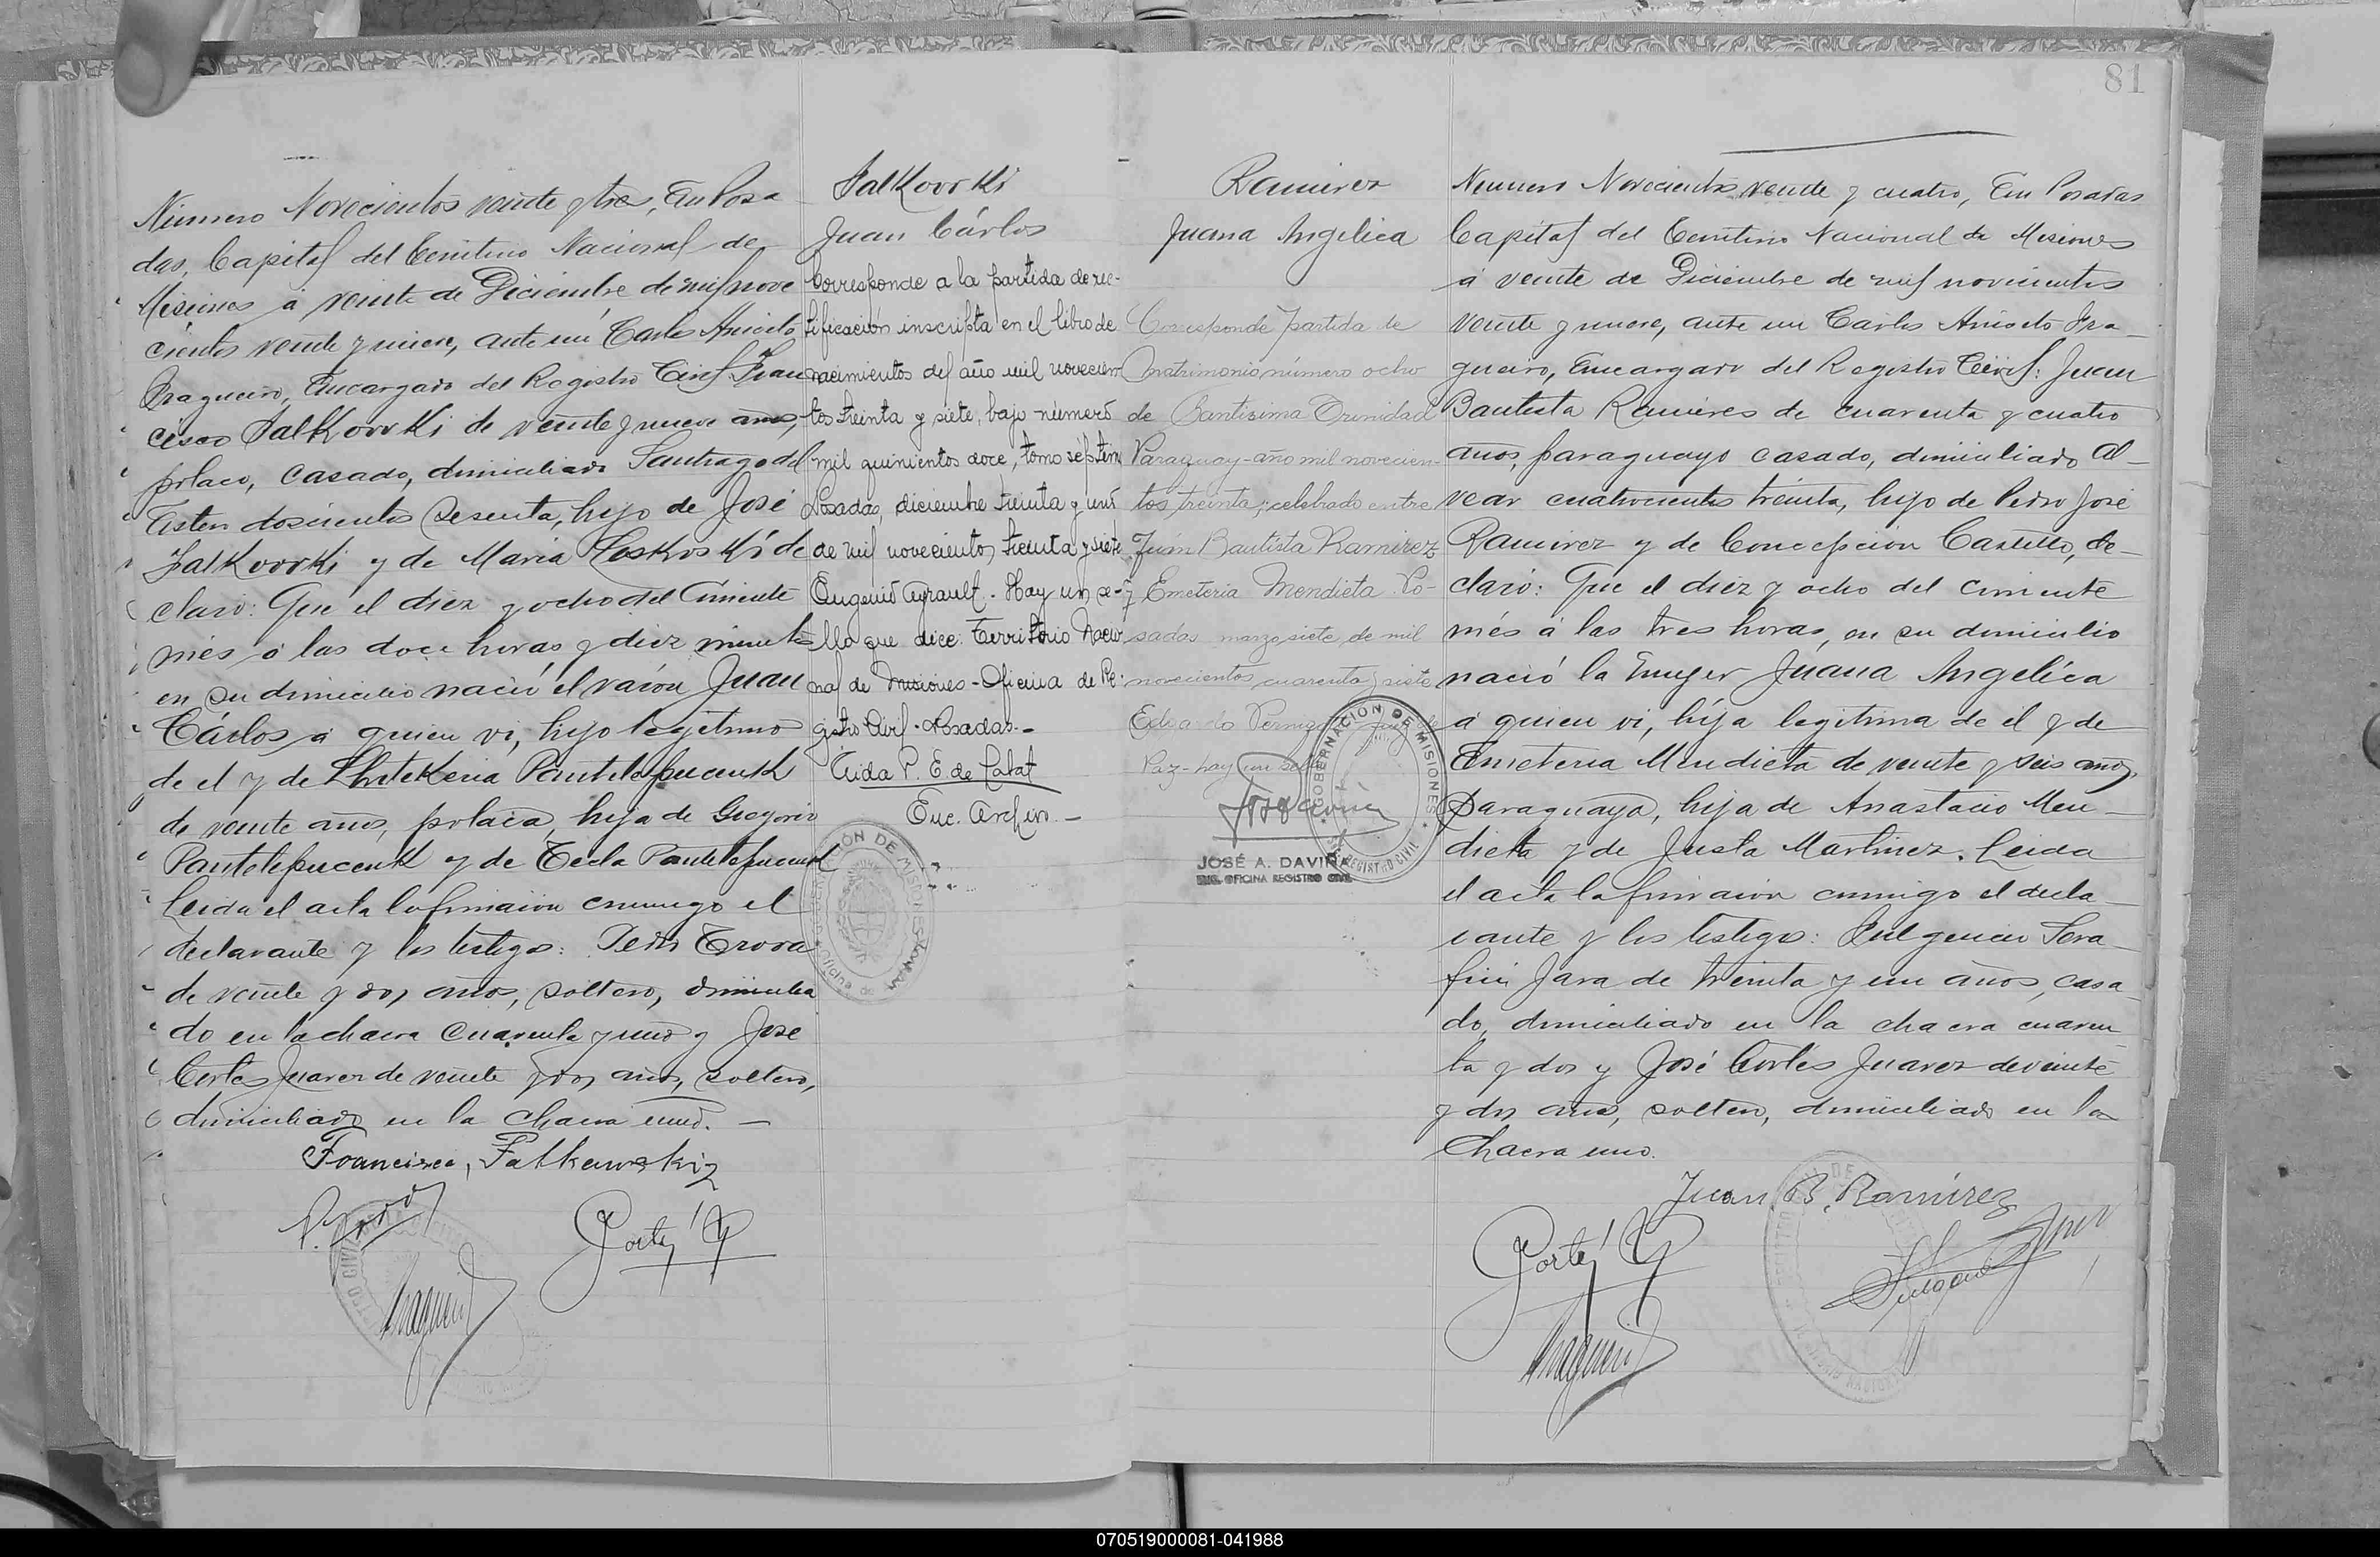 81
Número Novecientos veinte y tres, En Posa
das, Capital del Territorio Nacional de
Misiones á veinte de Diciembre de mil nove
cientos veinte y nueve, ante mí Carlos Aniceto
Fragueiro, Encargado del Registro Civil: Fran
cisco Falkovski de veinte y nueve años,
polaco, casado, domiciliado Santiago del
Estero doscientos sesenta, hijo de José
Falkovski y de María Loskoski de
claró: Que el diez y ocho del corriente
més á las doce horas y diez minutos
en su domicilio nació el varón Juan
Cárlos á quien vi, hijo legítimo
de el y de
de veinte años, polaca, hija de Gregorio
y de Tecla
Leida el acta la firmaron conmigo el
declarante y los testigos: Pedro
de veinte y dos años, soltero, domicilia
do en la chacra cuarenta y uno y José
Cortés Juarez de veinte y dos años, soltero,
domiciliado en la chacra uno. —
Francisco, Falkowski
Falkovski
Juan Cárlos
Corresponde a la partida de rec-
tificación inscripta en el libro de
nacimientos del año mil novecien
tos treinta y siete, bajo número
mil quinientos doce, tomo séptimo
Posadas, diciembre treinta y uno
de mil novecientos treinta y siete
Eugenio Ayrault. Hay un se-
llo que dice: Territorio Nacio
nal de Misiones - Oficina de Re-
gistro Civil - Posadas. -
P. E. de
Enc. Archivo. -
Ramirez
Juana Angélica
Corresponde partida de
matrimonio número ocho
de Santísima Trinidad
Paraguay - año mil novecien-
tos treinta; celebrado entre
Juan Bautista Ramirez
y Emeteria Mendieta. Po-
sadas marzo siete de mil
novecientos cuarenta y siete
Eduardo
Paz - hay un sello
GOBERNACION DE MISIONES
REGISTRO CIVIL
JOSÉ A. DAVIÑA
ENC. OFICINA REGISTRO CIVIL
Numero Novecientos veinte y cuatro, En Posadas
Capital del Territorio Nacional de Misiones
á veinte de Diciembre de mil novecientos
veinte y nueve, ante mi Carlos Aniceto Fra-
gueiro, Encargado del Registro Civil: Juan
Bautista Ramires de cuarenta y cuatro
años, paraguayo casado, domiciliado Al-
vear cuatrocientos treinta, hijo de Pedro José
Ramirez y de Concepción Castillo, de-
claró: Que el diez y ocho del corriente
més á las tres horas, en su domicilio
nació la mujer Juana Angélica
á quien vi, hija legítima de el y de
Emeteria Mendieta de veinte y seis años,
paraguaya, hija de Anastacio Men-
dieta y de Justa Martinez. Leida
el acta la firmaron conmigo el decla-
rante y los testigos: Fulgencio Sera-
fin Jara de treinta y un años, casa-
do, domiciliado en la chacra cuaren
ta y dos y José Cortés Juarez de veinte
y dos años, soltero, domiciliado en la
Chacra uno.
Juan B. Ramirez
070519000081-041988